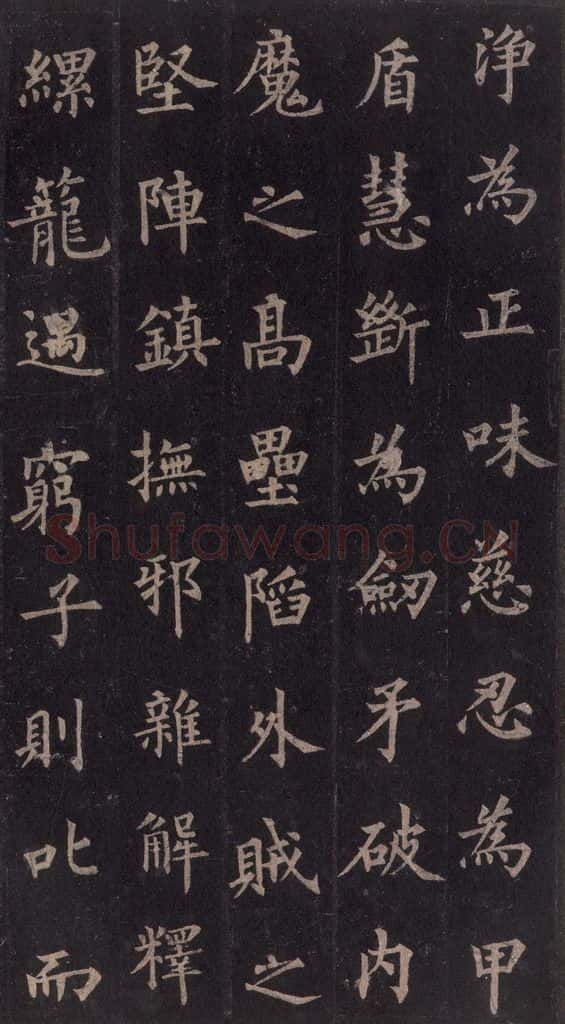 浄為正味慈忍為甲
盾慧斷為劒矛破内
魔之高壘陷外賊之
堅陣鎮撫邪雜解釋
縲籠遇窮子則叱而
Shufawang.CN